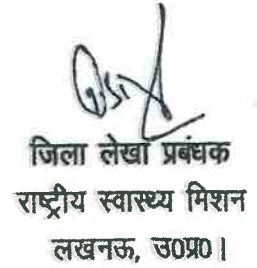 जिला लेखा प्रबंधक
राष्ट्रीय स्वास्थ्य मिशन
लखनऊ, उ0प्र0।